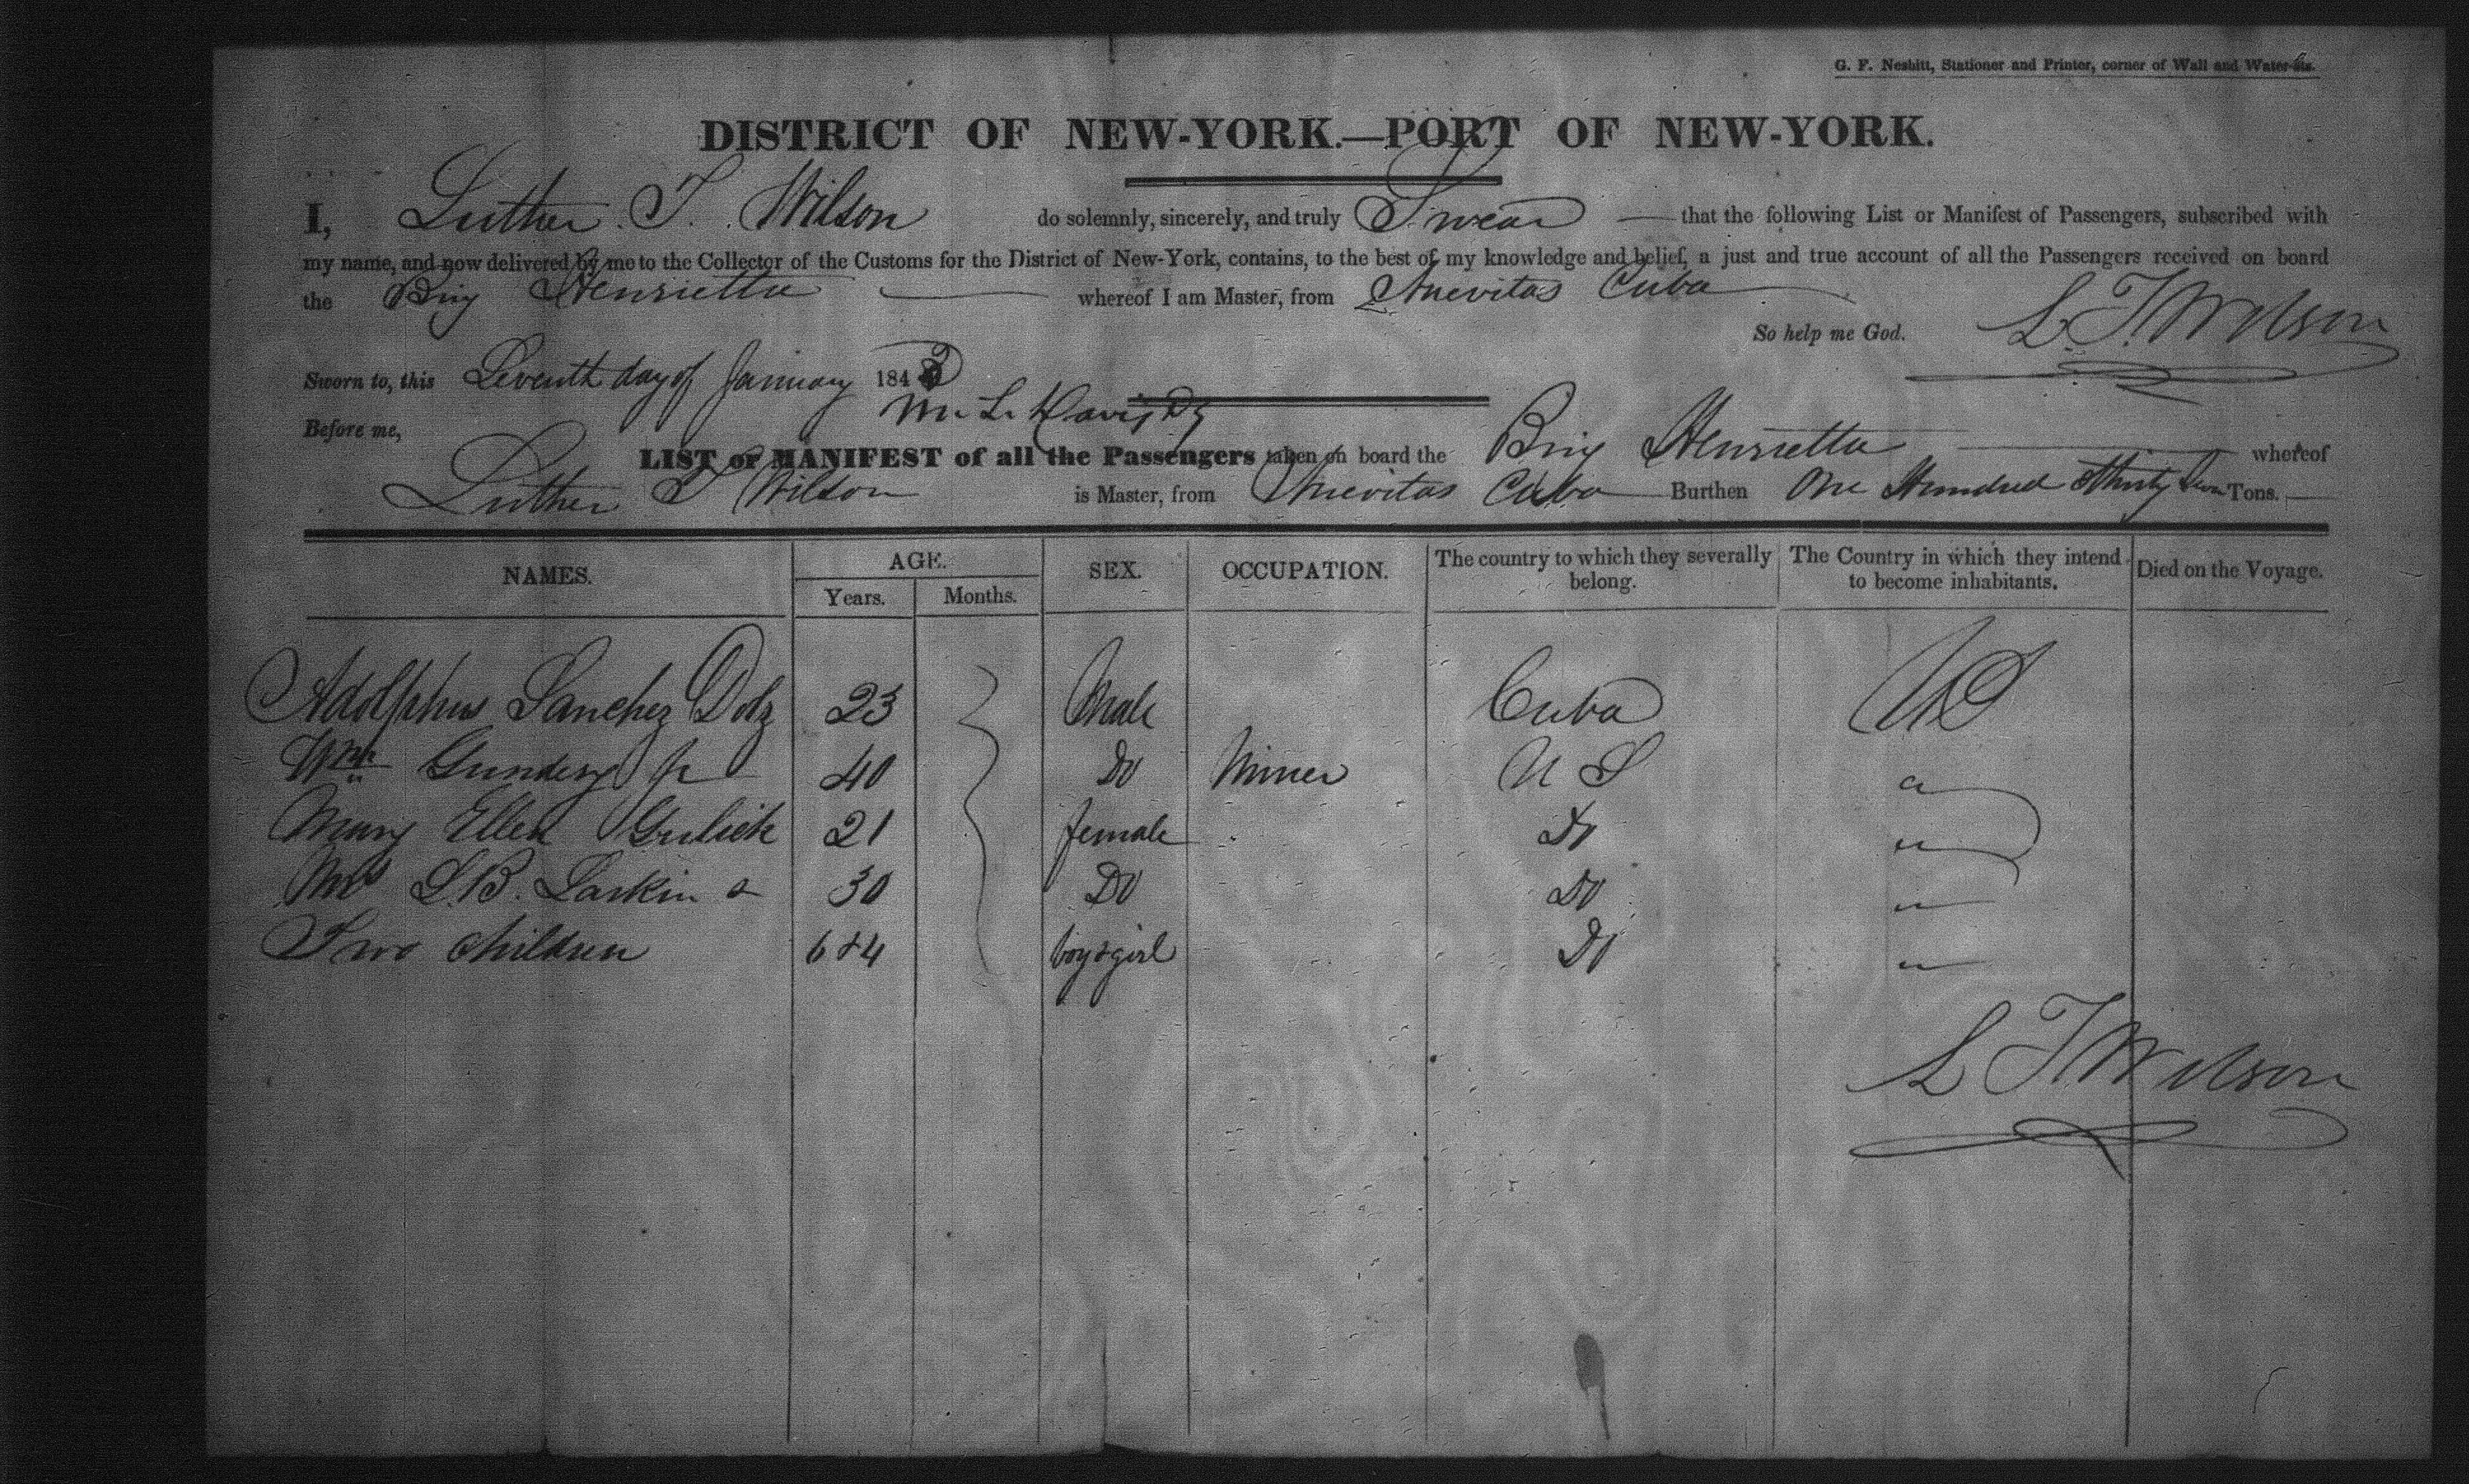 G. F. Nesbitt, Stationer and Printer, corner of Wall and Water-sts.
DISTRICT OF NEW-YORK.—PORT OF NEW-YORK.
I, Luther T. Wilson do solemnly, sincerely, and truly Swear — that the following List or Manifest of Passengers, subscribed with
my name, and now delivered by me to the Collector of the Customs for the District of New-York, contains, to the best of my knowledge and belief, a just and true account of all the Passengers received on board
the Brig Henrietta — whereof I am Master, from Nuevitas Cuba
So help me God. L T Wilson
Sworn to, this Seventh day of January 1843
Before me,
LIST or MANIFEST of all the Passengers taken on board the Brig Henrietta — whereof
Luther T Wilson is Master, from Nuevitas Cuba Burthen One Hundred Thirty Tons.
NAMES. AGE. SEX. OCCUPATION. The country to which they severally belong. The Country in which they intend to become inhabitants. Died on the Voyage.
Years. Months.
Adolphus Sanchez Dolz 23 Male Cuba US
Wm Jr 40 Do Miner U S "
Mary Ellen Gulick 21 female Do "
Mrs S.B. Larkin & 30 Do Do "
Two children 6 & 4 boy & girl Do "
L T Wilson